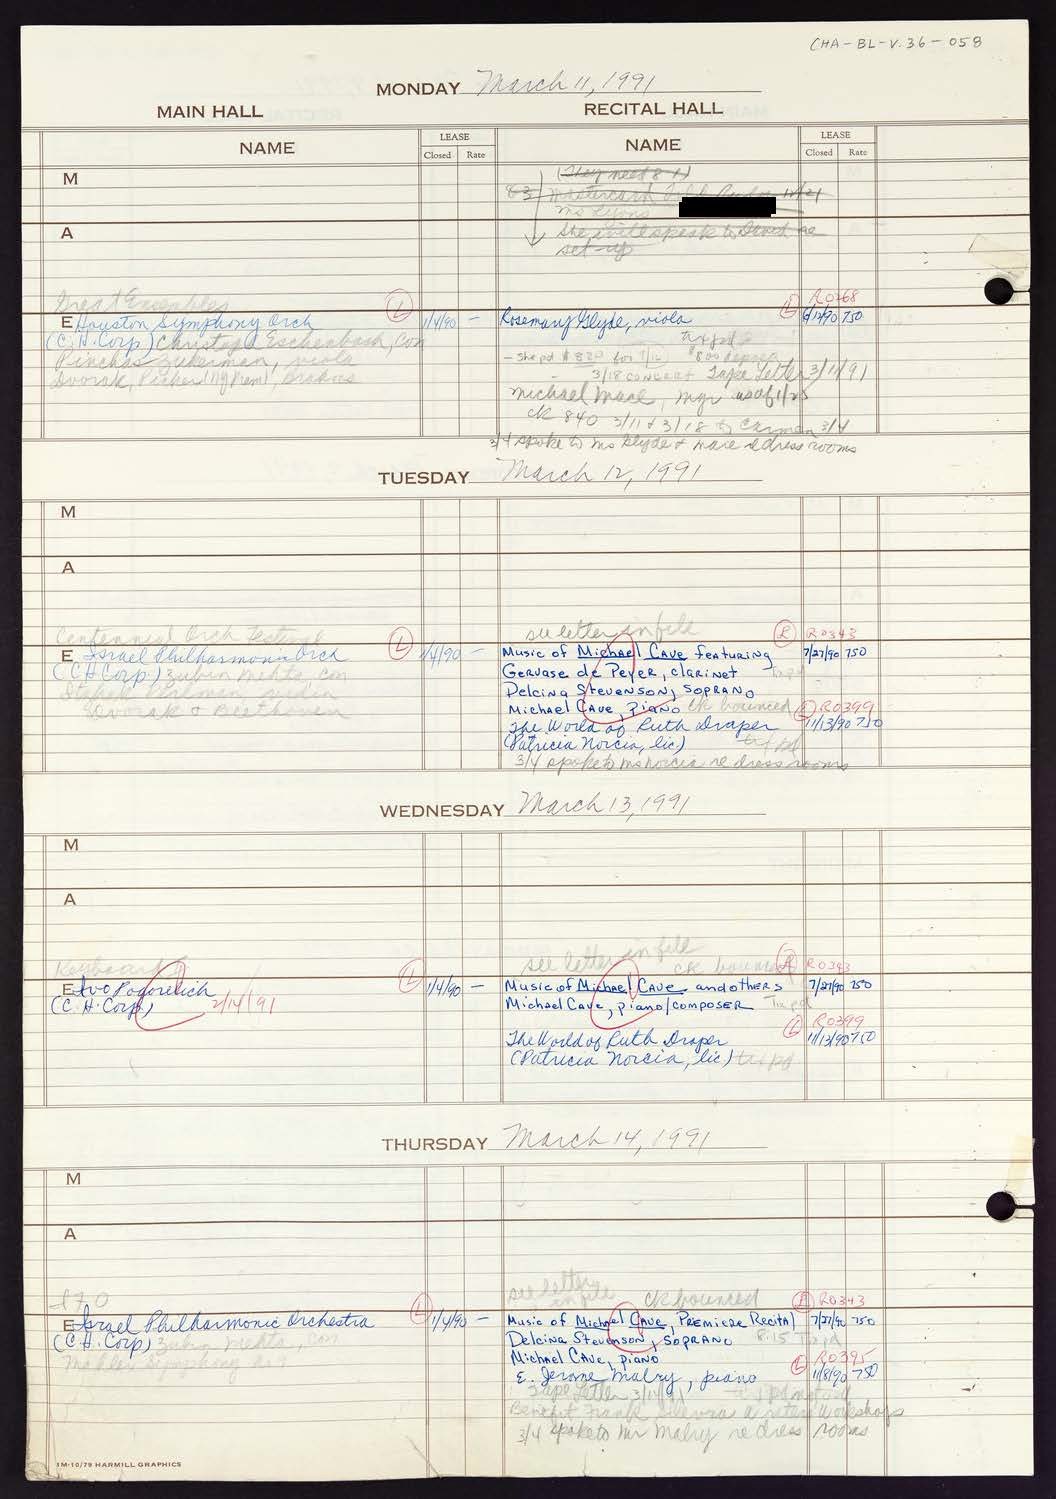 CHA-BL-V.36-058
MONDAY March 11, 1991
MAIN HALL
RECITAL HALL
NAME
LEASE
Closed Rate
NAME
LEASE
Closed Rate
M
(They need 8-1)
8-3 Mastercash
Ms Lyons
A
she will speak to David re
set-up
Great Ensembles
E Houston Symphony Orch
(C.H. Corp) Christoph Eschenbach, con
Pinchas Zukerman, viola
Dvorak, Picker (NY Prem), Brahms
L
1/4/90 —
L R0268
Rosemary Glyde, viola
6/12/90 750
tix pd
— She pd $820 for 7/12 $800 deposit
- 3/18 concert Tape Letter 3/11/91
Michael Mace, mgr as of 1/25
ck 840 3/11 & 3/18 to Carmen 3/4
3/4 spoke to Ms Glyde & Mace re dress rooms
TUESDAY March 12, 1991
M
A
Centennial Orch Festival
E Israel Philharmonic Orch
(C.H. Corp.) Zubin Mehta, con
Itzhak Perlman, violin
Dvorak & Beethoven
L
1/4/90 —
see letter in file
L R0343
Music of Michael Cave featuring
7/27/90 750
Gervase de Peyer, clarinet Tix pd
Delcina Stevenson, soprano
Michael Cave, piano ck bounced
L R0399
The World of Ruth Draper
11/13/90 750
(Patricia Norcia, lic) tix pd
3/4 spoke to Ms Norcia re dress rooms
WEDNESDAY March 13, 1991
M
A
Keyboard
E Ivo Pogorelich
(C.H. Corp.) 2/14/91
L
1/4/90 —
see letter in file
ck bounced
R0343
Music of Michael Cave and others
7/27/90 750
Michael Cave, piano/composer Tix pd
L R0399
The World of Ruth Draper
11/13/90 750
(Patricia Norcia, lic) tix pd
THURSDAY March 14, 1991
M
A
IFO
E Israel Philharmonic Orchestra
(C.H. Corp) Zubin Mehta, con
Mahler Symphony No 9
L
1/4/90 —
see letter
in file
ck bounced
R0343
Music of Michael Cave, Premiere Recital
7/27/90 750
Delcina Stevenson, soprano 8:15 Tix pd
Michael Cave, piano
L R0395
E. Jerome Malry, piano
11/8/90 750
Tape Letter 3/14/91
Benefit Frank Silvera Writers Workshop
3/4 spoke to Mr Malry re dress rooms
1M-10/79 HARMILL GRAPHICS